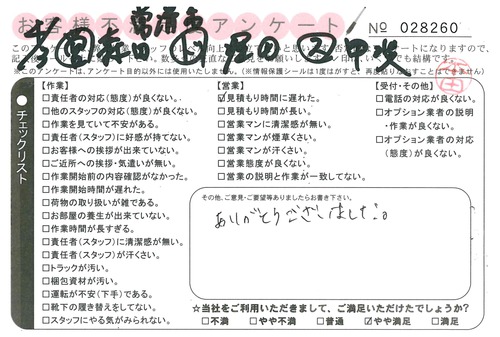 お客様不満アンケート
№ 028260
※このアンケートは、アンケート目的以外には使用いたしません。(※情報保護シールは1度はがすと、再度貼りなおすことはできません)
チェックリスト
【作業】
□責任者の対応(態度)が良くない。
□他のスタッフの対応(態度)が良くない。
□作業を見ていて不安がある。
□責任者(スタッフ)に好感が持てない。
□お客様への挨拶が出来ていない。
□ご近所への挨拶・気遣いが無い。
□作業開始前の内容確認がなかった。
□作業開始時間が遅れた。
□荷物の取り扱いが雑である。
□お部屋の養生が出来ていない。
□作業時間が長すぎる。
□責任者(スタッフ)に清潔感が無い。
□責任者(スタッフ)が汗くさい。
□トラックが汚い。
□梱包資材が汚い。
□運転が不安(下手)である。
□靴下の履き替えをしてない。
□スタッフにやる気がみられない。
【営業】
☑見積もり時間に遅れた。
□見積もり時間が長い。
□営業マンに清潔感が無い。
□営業マンが煙草くさい。
□営業マンが汗くさい。
□営業態度が良くない。
□営業の説明と作業が一致してない。
【受付・その他】
□電話の対応が良くない。
□オプション業者の説明・作業が良くない。
□オプション業者の対応(態度)が良くない。
その他、ご意見・ご要望等ありましたらお書き下さい。
ありがとうございました。
☆当社をご利用いただきまして、ご満足いただけたでしょうか?
□不満 □やや不満 □普通 ☑やや満足 □満足